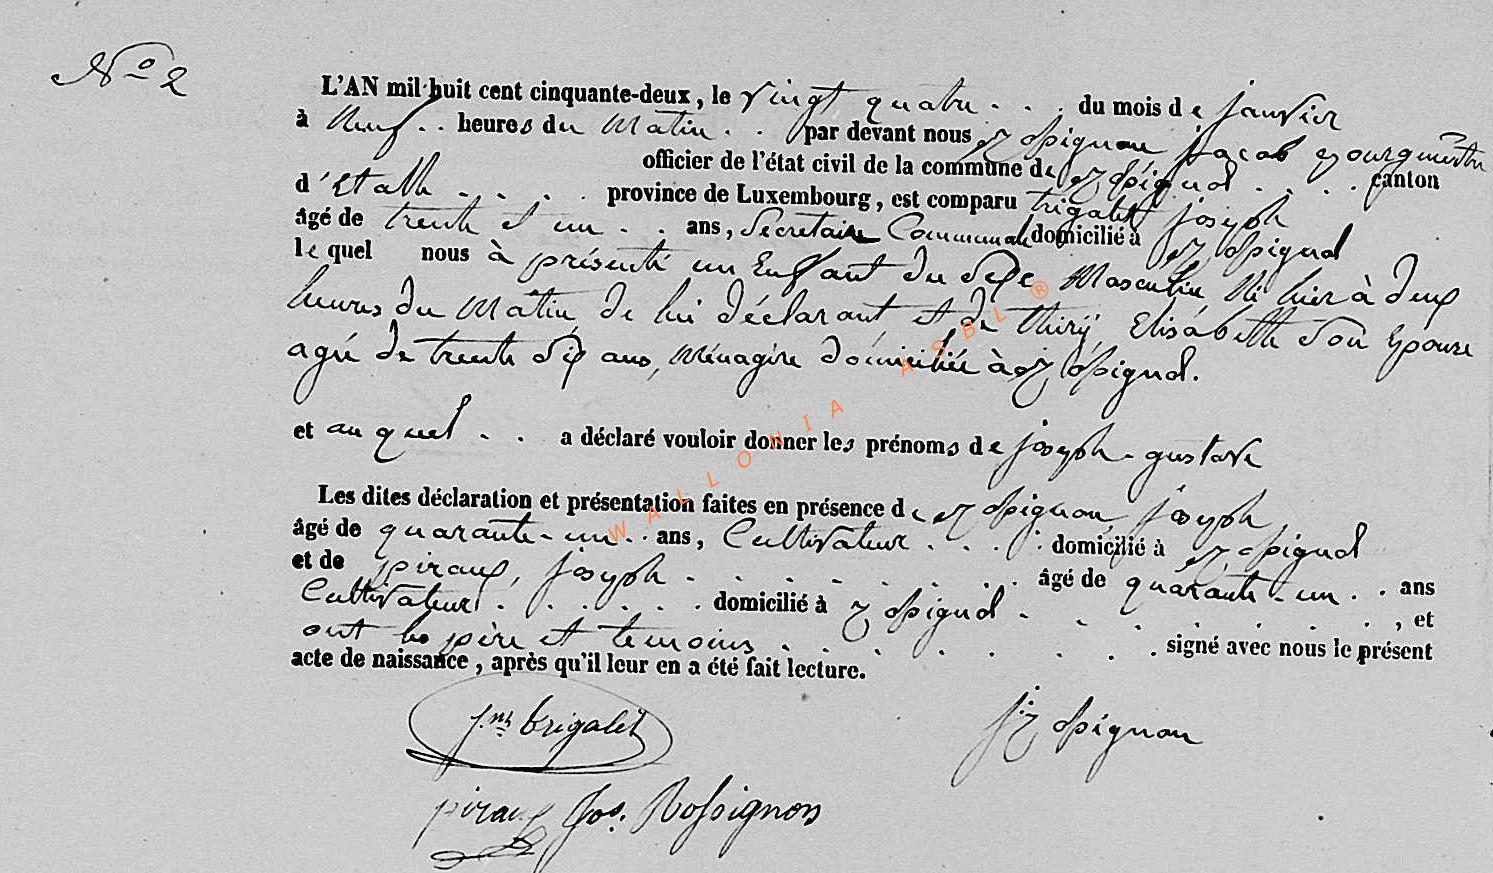 N° 2
L'AN mil huit cent cinquante-deux, le vingt quatre . . . du mois de janvier
à neuf . . heures du matin . . par devant nous Rossignon jacob Bourgmestre
officier de l'état civil de la commune de Rossignol . . . . canton
d'Etalle . . . . province de Luxembourg, est comparu trigalet joseph
âgé de trente et un . . . ans, Secretaire Communal domicilié à Rossignol
le quel nous à présenté un Enfant du sexe Masculin Né hier à deux
heures du Matin, de lui déclarant et de thiry, Elisabeth Son Epouse
agée de trente six ans, Ménagère domiciliée à Rossignol.
et au quel . . a déclaré vouloir donner les prénoms de joseph-gustave
Les dites déclaration et présentation faites en présence de Rossignon, joseph,
âgé de quarante-un . . ans, Cultivateur . . . . domicilié à Rossignol
et de piraux, joseph . . . . . . . . âgé de quarante-un . . ans
Cultivateur . . . . . domicilié à Rossignol . . . . . . . , et
ont le père et temoins . . . . . . . signé avec nous le présent
acte de naissance, après qu'il leur en a été fait lecture.
trigalet
j. Rossignon
piraux Jos. Rossignon
WALLONIA ASBL ®